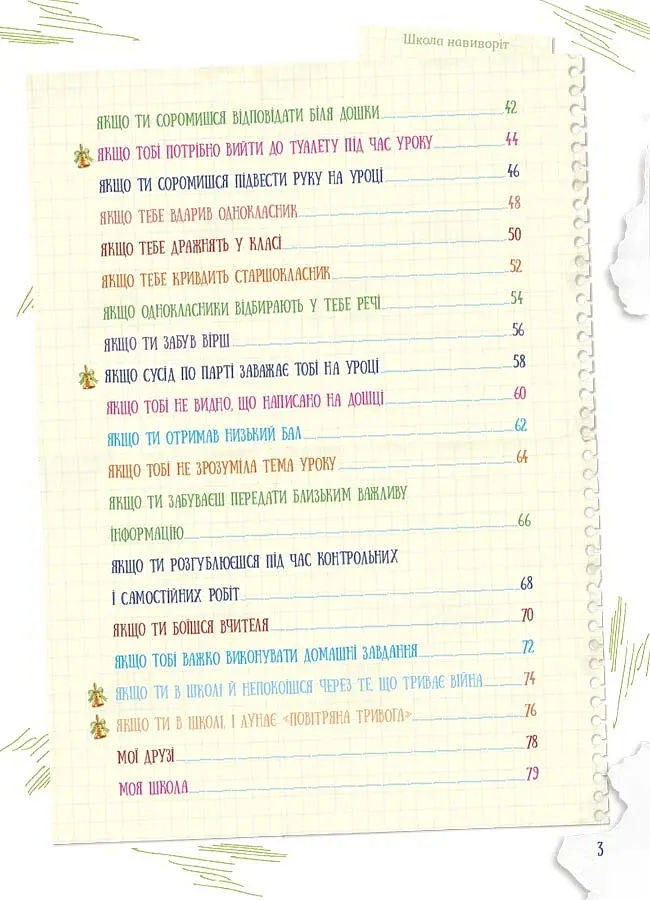 Школа навиворіт
ЯКЩО ТИ СОРОМИШСЯ ВІДПОВІДАТИ БІЛЯ ДОШКИ 42
ЯКЩО ТОБІ ПОТРІБНО ВИЙТИ ДО ТУАЛЕТУ ПІД ЧАС УРОКУ 44
ЯКЩО ТИ СОРОМИШСЯ ПІДВЕСТИ РУКУ НА УРОЦІ 46
ЯКЩО ТЕБЕ ВДАРИВ ОДНОКЛАСНИК 48
ЯКЩО ТЕБЕ ДРАЖНЯТЬ У КЛАСІ 50
ЯКЩО ТЕБЕ КРИВДИТЬ СТАРШОКЛАСНИК 52
ЯКЩО ОДНОКЛАСНИКИ ВІДБИРАЮТЬ У ТЕБЕ РЕЧІ 54
ЯКЩО ТИ ЗАБУВ ВІРШ 56
ЯКЩО СУСІД ПО ПАРТІ ЗАВАЖАЄ ТОБІ НА УРОЦІ 58
ЯКЩО ТОБІ НЕ ВИДНО, ЩО НАПИСАНО НА ДОШЦІ 60
ЯКЩО ТИ ОТРИМАВ НИЗЬКИЙ БАЛ 62
ЯКЩО ТОБІ НЕ ЗРОЗУМІЛА ТЕМА УРОКУ 64
ЯКЩО ТИ ЗАБУВАЄШ ПЕРЕДАТИ БЛИЗЬКИМ ВАЖЛИВУ
ІНФОРМАЦІЮ 66
ЯКЩО ТИ РОЗГУБЛЮЄШСЯ ПІД ЧАС КОНТРОЛЬНИХ
І САМОСТІЙНИХ РОБІТ 68
ЯКЩО ТИ БОЇШСЯ ВЧИТЕЛЯ 70
ЯКЩО ТОБІ ВАЖКО ВИКОНУВАТИ ДОМАШНІ ЗАВДАННЯ 72
ЯКЩО ТИ В ШКОЛІ Й НЕПОКОЇШСЯ ЧЕРЕЗ ТЕ, ЩО ТРИВАЄ ВІЙНА 74
ЯКЩО ТИ В ШКОЛІ, І ЛУНАЄ «ПОВІТРЯНА ТРИВОГА» 76
МОЇ ДРУЗІ 78
МОЯ ШКОЛА 79
3